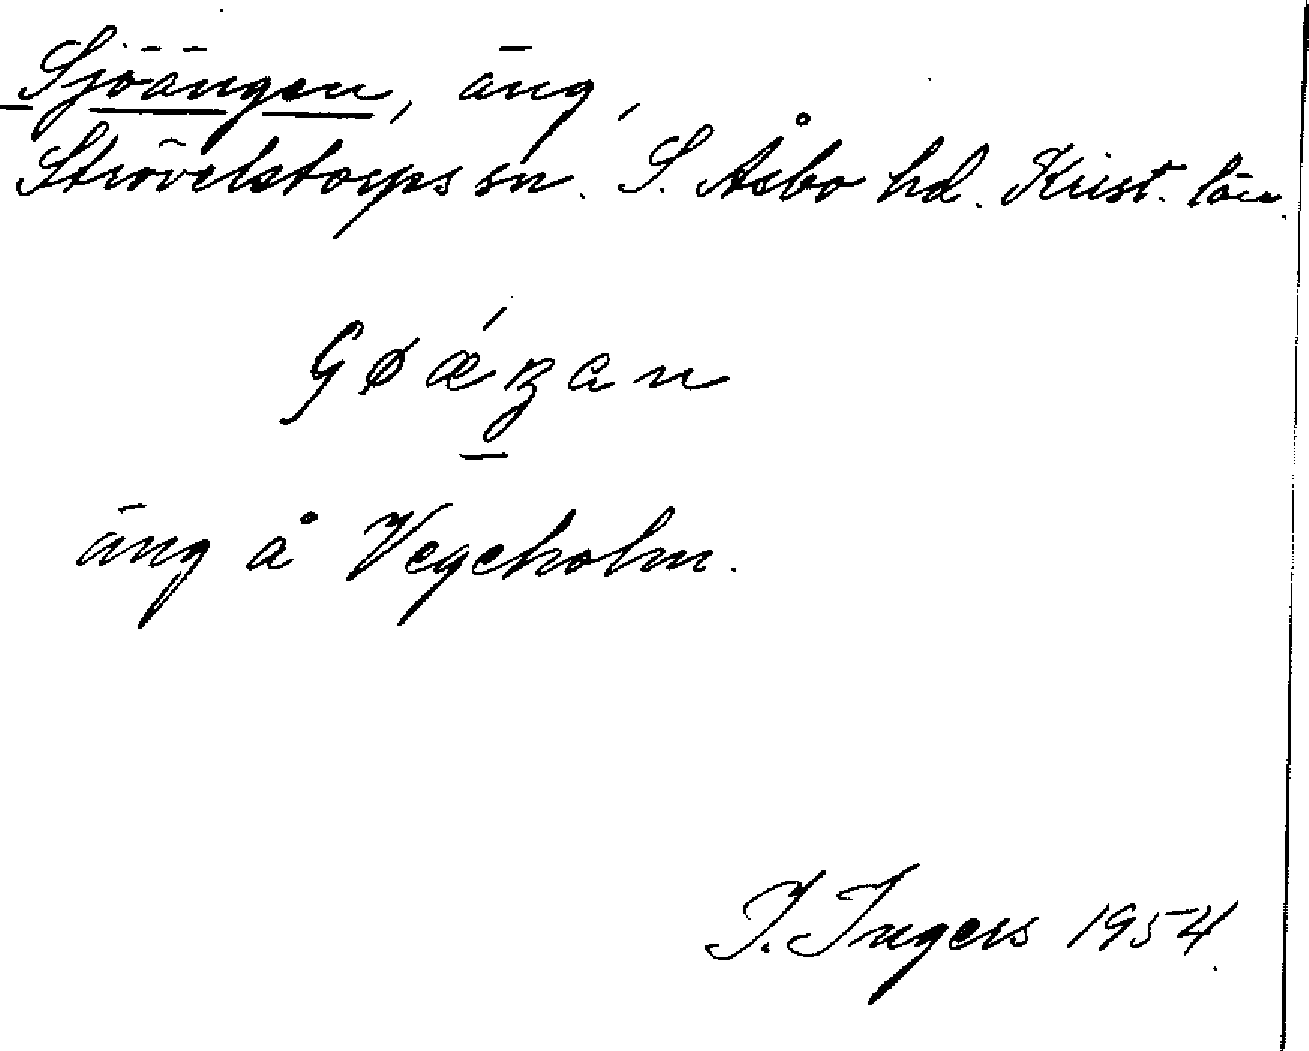 Sjöängen, äng,
Strövelstorps sn. S. Åsbo hd. Krist. län.
äng å Vegeholm.
I. Ingers 1954.